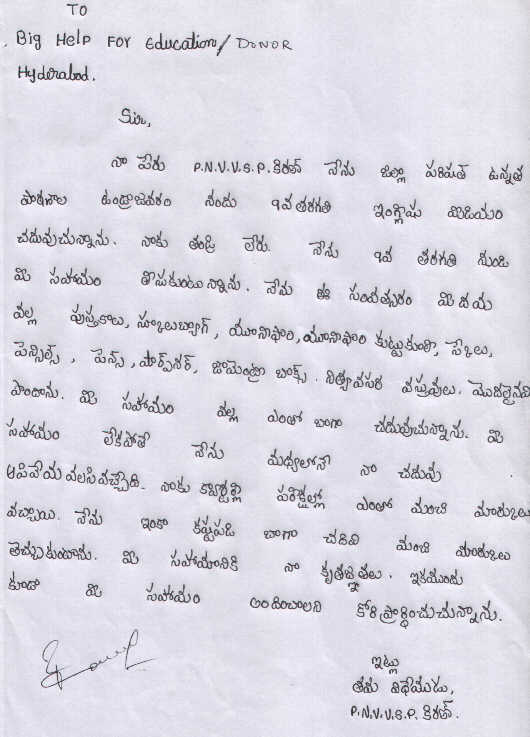 TO
Big Help For Education/DONOR
Hyderabad.
Sir,
నా పేరు P.N.V.V.S.P. కిరణ్ నేను జిల్లా పరిషత్ ఉన్నత
పాఠశాల ఉండ్రాజవరం నందు 9వ తరగతి ఇంగ్లీషు మీడియం
చదువుచున్నాను. నాకు తండ్రి లేరు. నేను 9వ తరగతి నుండి
మీ సహాయం తీసుకుంటున్నాను. నేను ఈ సంవత్సరం మీ దయ
వల్ల పుస్తకాలు, స్కూలుబ్యాగ్, యూనిఫాం, యూనిఫాం కుట్టుకూలి, స్కేలు,
పెన్సిల్స్, పెన్స్, షార్ప్‌నర్, జామెంట్రీ బాక్స్. నిత్యావసర వస్తువులు. మొదలైనవి
పొందాను. మీ సహాయం వల్ల ఎంతో బాగా చదువుచున్నాను. మీ
సహాయం లేకపోతే నేను మధ్యలోనే నా చదువు
ఆపివేయ వలసివచ్చేది. నాకు క్వార్టర్లీ పరీక్షల్లో ఎంతో మంచి మార్కులు
వచ్చాయి. నేను ఇంకా కష్టపడి బాగా చదివి మంచి మార్కులు
తెచ్చుకుంటాను. మీ సహాయానికి నా కృతజ్ఞతలు. ఇకముందు
కూడా మీ సహాయం అందించాలని కోరి ప్రార్థించుచున్నాను.
ఇట్లు
తమ విధేయుడు,
P.N.V.V.S.P. కిరణ్.